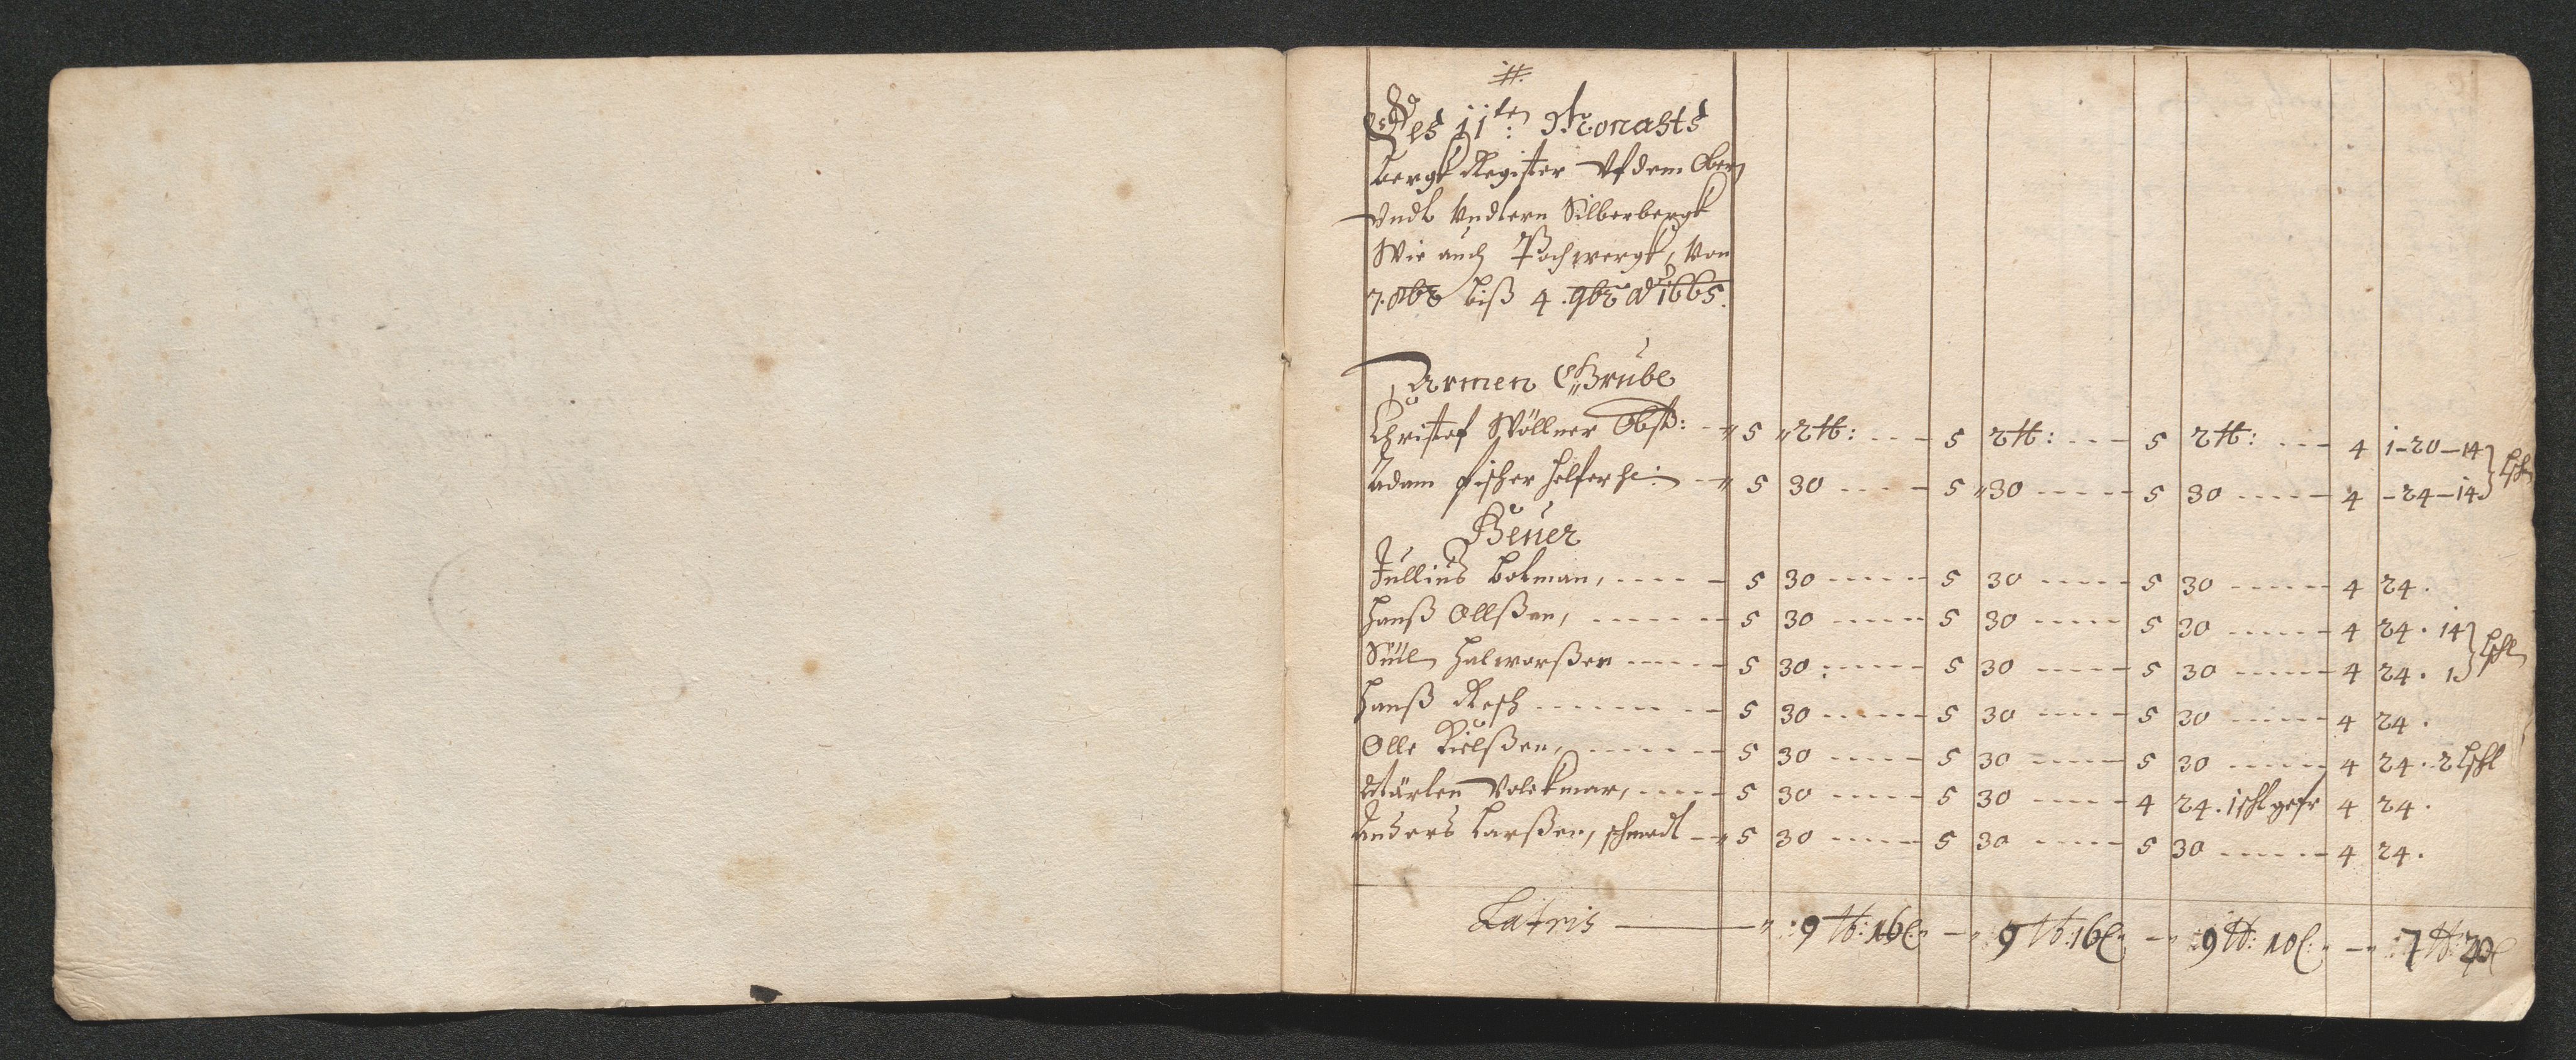 Des 11ten: Monahts
Bergk Register Vf dem Ober
Vndt Vndtern Silberbergk
Wie auch Pochwergk, von
7. 8br biß 4. 9br Ao 1665.
Armen Grube
Christof Wöllner Obst: 5 2 tt: 5 2 tt: 5 2 tt: 4 1-20-14
Adam fischer helfer 5 30 5 30 5 30 4 -24-14
Heuer
Jullius Bokman, 5 30 5 30 5 30 4 24.
Hanß Ollßen, 5 30 5 30 5 30 4 24. 14
Halworßen 5 30 5 30 5 30 4 24. 1
Hanß Resch 5 30 5 30 5 30 4 24.
Olle Nielßen, 5 30 5 30 5 30 4 24. 2 schl
Mårten Volckmar, 5 30 5 30 4 24. 1 schl gefr 4 24.
Anders Larßen, schmedt 5 30 5 30 5 30 4 24.
Latris 9 tt: 16 9 tt: 16 9 tt: 10 7 tt: 20